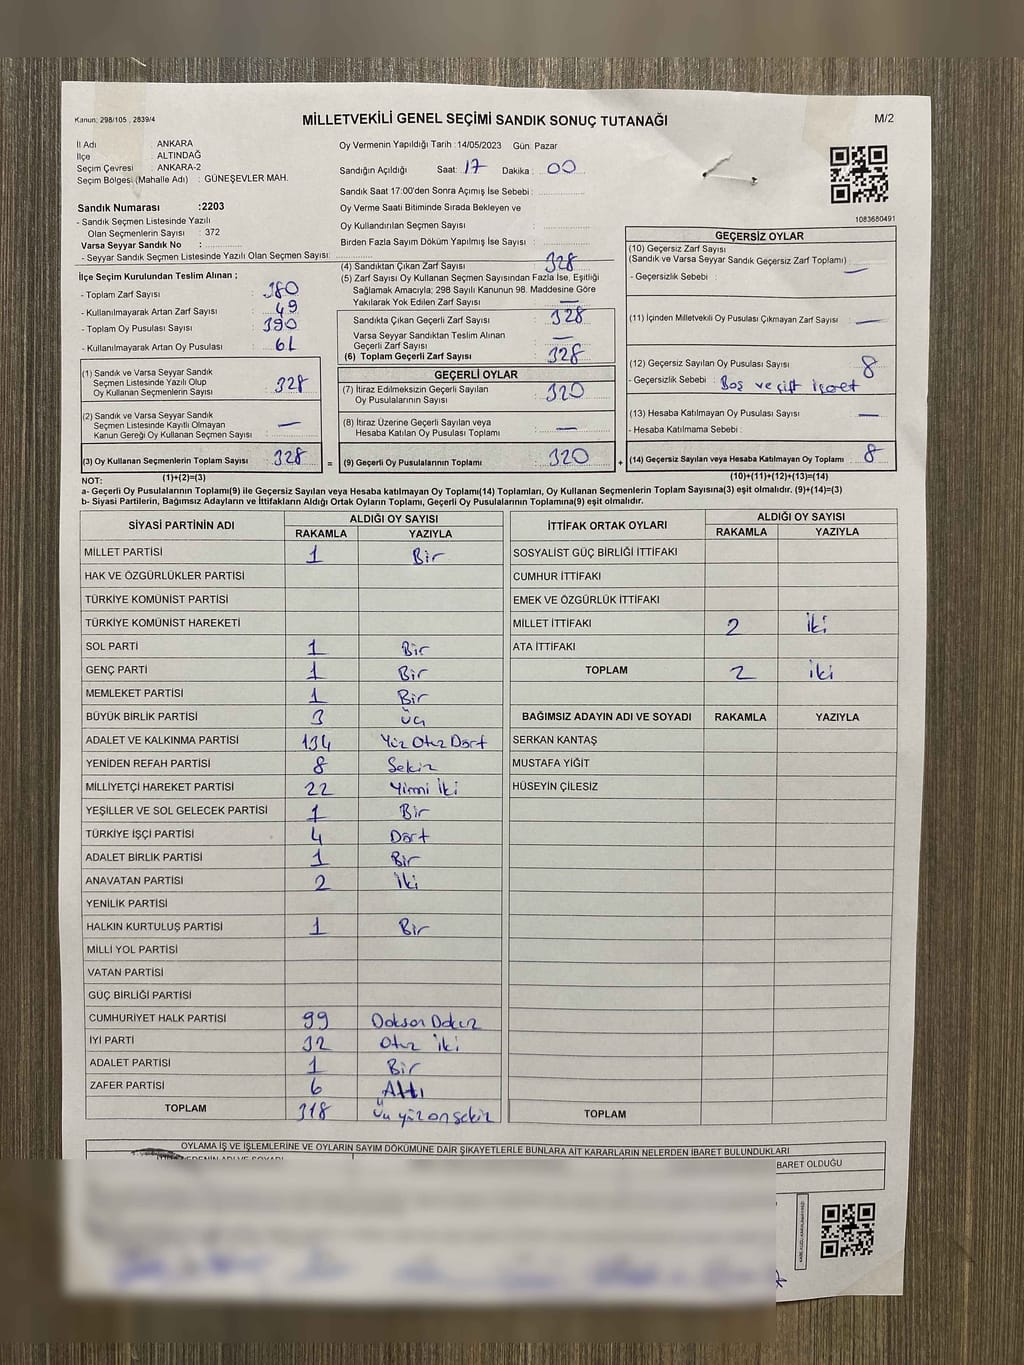 Kanun; 298/105 , 2839/4
MİLLETVEKİLİ GENEL SEÇİMİ SANDIK SONUÇ TUTANAĞI
M/2
İl Adı ANKARA
İlçe : ALTINDAĞ
Seçim Çevresi : ANKARA-2
Seçim Bölgesi (Mahalle Adı) : GÜNEŞEVLER MAH.
Sandık Numarası :2203
- Sandık Seçmen Listesinde Yazılı
Olan Seçmenlerin Sayısı : 372
Varsa Seyyar Sandık No :
- Seyyar Sandık Seçmen Listesinde Yazılı Olan Seçmen Sayısı:
Oy Vermenin Yapıldığı Tarih :14/05/2023 Gün: Pazar
Sandığın Açıldığı Saat: 17 Dakika : 00
Sandık Saat 17:00'den Sonra Açımış İse Sebebi :
Oy Verme Saati Bitiminde Sırada Bekleyen ve
Oy Kullandırılan Seçmen Sayısı :
Birden Fazla Sayım Döküm Yapılmış İse Sayısı :
1083680491
İlçe Seçim Kurulundan Teslim Alınan ;
- Toplam Zarf Sayısı : 380
- Kullanılmayarak Artan Zarf Sayısı : 49
- Toplam Oy Pusulası Sayısı : 390
- Kullanılmayarak Artan Oy Pusulası : 61
(1) Sandık ve Varsa Seyyar Sandık
Seçmen Listesinde Yazılı Olup
Oy Kullanan Seçmenlerin Sayısı : 328
(2) Sandık ve Varsa Seyyar Sandık
Seçmen Listesinde Kayıtlı Olmayan
Kanun Gereği Oy Kullanan Seçmen Sayısı : —
(3) Oy Kullanan Seçmenlerin Toplam Sayısı : 328
(1)+(2)=(3)
(4) Sandıktan Çıkan Zarf Sayısı : 328
(5) Zarf Sayısı Oy Kullanan Seçmen Sayısından Fazla İse, Eşitliği
Sağlamak Amacıyla; 298 Sayılı Kanunun 98. Maddesine Göre
Yakılarak Yok Edilen Zarf Sayısı : —
Sandıkta Çıkan Geçerli Zarf Sayısı : 328
Varsa Seyyar Sandıktan Teslim Alınan
Geçerli Zarf Sayısı : —
(6) Toplam Geçerli Zarf Sayısı : 328
GEÇERLİ OYLAR
(7) İtiraz Edilmeksizin Geçerli Sayılan
Oy Pusulalarının Sayısı : 320
(8) İtiraz Üzerine Geçerli Sayılan veya
Hesaba Katılan Oy Pusulası Toplamı : —
= (9) Geçerli Oy Pusulalarının Toplamı : 320 +
GEÇERSİZ OYLAR
(10) Geçersiz Zarf Sayısı
(Sandık ve Varsa Seyyar Sandık Geçersiz Zarf Toplamı) : —
- Geçersizlik Sebebi :
(11) İçinden Milletvekili Oy Pusulası Çıkmayan Zarf Sayısı : —
(12) Geçersiz Sayılan Oy Pusulası Sayısı : 8
- Geçersizlik Sebebi : Boş ve çift işaret
(13) Hesaba Katılmayan Oy Pusulası Sayısı : —
- Hesaba Katılmama Sebebi :
(14) Geçersiz Sayılan veya Hesaba Katılmayan Oy Toplamı : 8
(10)+(11)+(12)+(13)=(14)
NOT:
a- Geçerli Oy Pusulalarının Toplamı(9) ile Geçersiz Sayılan veya Hesaba katılmayan Oy Toplamı(14) Toplamları, Oy Kullanan Seçmenlerin Toplam Sayısına(3) eşit olmalıdır. (9)+(14)=(3)
b- Siyasi Partilerin, Bağımsız Adayların ve İttifakların Aldığı Ortak Oyların Toplamı, Geçerli Oy Pusulalarının Toplamına(9) eşit olmalıdır.
SİYASİ PARTİNİN ADI ALDIĞI OY SAYISI
RAKAMLA YAZIYLA
MİLLET PARTİSİ 1 Bir
HAK VE ÖZGÜRLÜKLER PARTİSİ
TÜRKİYE KOMÜNİST PARTİSİ
TÜRKİYE KOMÜNİST HAREKETİ
SOL PARTİ 1 Bir
GENÇ PARTİ 1 Bir
MEMLEKET PARTİSİ 1 Bir
BÜYÜK BİRLİK PARTİSİ 3 Üç
ADALET VE KALKINMA PARTİSİ 134 Yüz Otuz Dört
YENİDEN REFAH PARTİSİ 8 Sekiz
MİLLİYETÇİ HAREKET PARTİSİ 22 Yirmi İki
YEŞİLLER VE SOL GELECEK PARTİSİ 1 Bir
TÜRKİYE İŞÇİ PARTİSİ 4 Dört
ADALET BİRLİK PARTİSİ 1 Bir
ANAVATAN PARTİSİ 2 İki
YENİLİK PARTİSİ
HALKIN KURTULUŞ PARTİSİ 1 Bir
MİLLİ YOL PARTİSİ
VATAN PARTİSİ
GÜÇ BİRLİĞİ PARTİSİ
CUMHURİYET HALK PARTİSİ 99 Doksan Dokuz
İYİ PARTİ 32 Otuz iki
ADALET PARTİSİ 1 Bir
ZAFER PARTİSİ 6 Altı
TOPLAM 318 Üç yüz on sekiz
İTTİFAK ORTAK OYLARI ALDIĞI OY SAYISI
RAKAMLA YAZIYLA
SOSYALİST GÜÇ BİRLİĞİ İTTİFAKI
CUMHUR İTTİFAKI
EMEK VE ÖZGÜRLÜK İTTİFAKI
MİLLET İTTİFAKI 2 iki
ATA İTTİFAKI
TOPLAM 2 iki
BAĞIMSIZ ADAYIN ADI VE SOYADI RAKAMLA YAZIYLA
SERKAN KANTAŞ
MUSTAFA YİĞİT
HÜSEYİN ÇİLESİZ
TOPLAM
OYLAMA İŞ VE İŞLEMLERİNE VE OYLARIN SAYIM DÖKÜMÜNE DAİR ŞİKAYETLERLE BUNLARA AİT KARARLARIN NELERDEN İBARET BULUNDUKLARI
BARET OLDUĞU